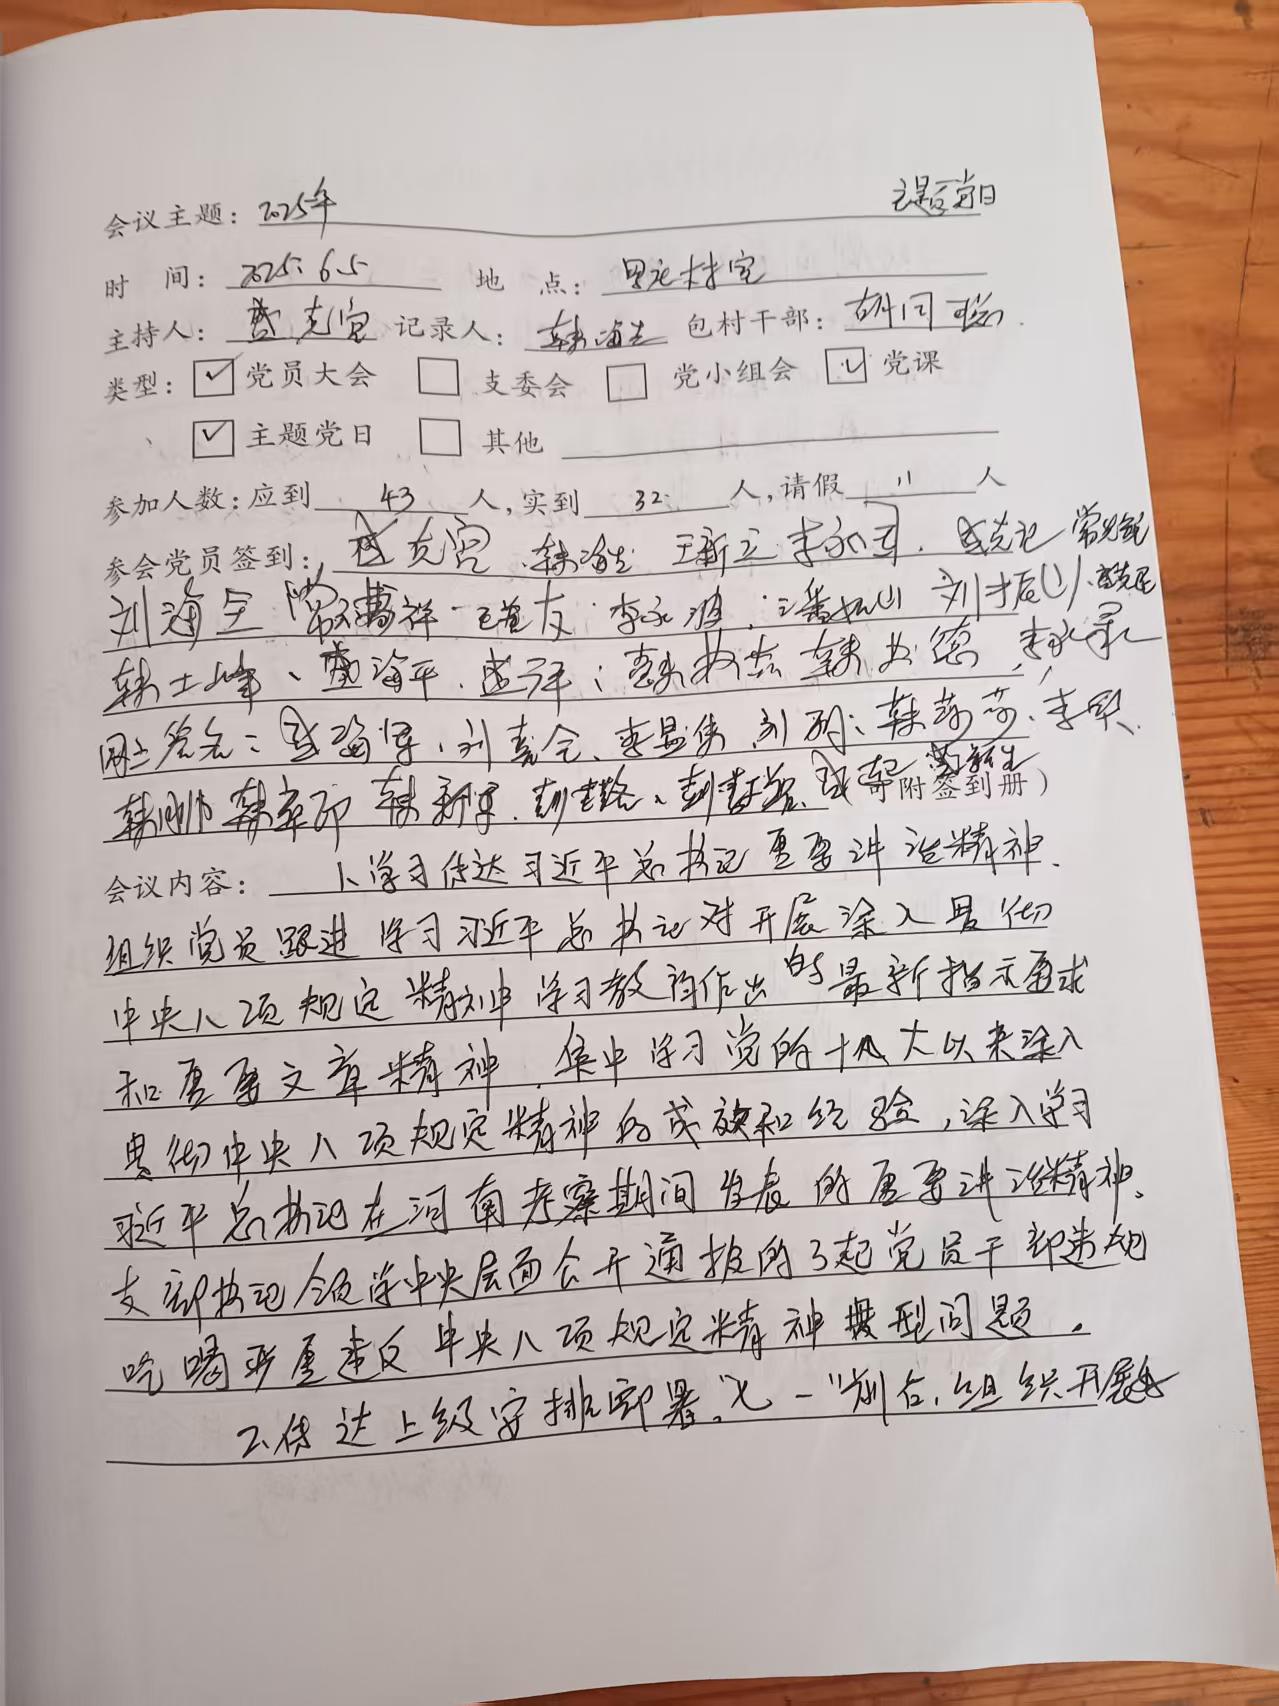 会议主题: 2025年 主题党日
时 间: 2025.6.5 地 点:
主持人: 盛克宽 记录人: 韩海生 包村干部: 胡同聪
类型: ☑ 党员大会 □ 支委会 □ 党小组会 ☑ 党课
☑ 主题党日 □ 其他
参加人数: 应到 43 人, 实到 32 人, 请假 11 人
参会党员签到: 盛克宽 韩海生 王新立 李永军 盛克记
刘海全 李永波 刘振山
韩士峰、盛海平、李永录
刘喜全、韩莉莉、
韩帅帅 韩新军、 附签到册)
会议内容: 1、学习传达习近平总书记重要讲话精神.
组织党员跟进学习习近平总书记对开展深入贯彻
中央八项规定精神学习教育作出的最新指示要求
和重要文章精神,集中学习党的十八大以来深入
贯彻中央八项规定精神的成效和经验,深入学习
习近平总书记在河南考察期间发表的重要讲话精神。
支部书记领学中央层面公开通报的3起党员干部违规
吃喝严重违反中央八项规定精神典型问题。
2、传达上级安排部署。"七一"前后,组织开展